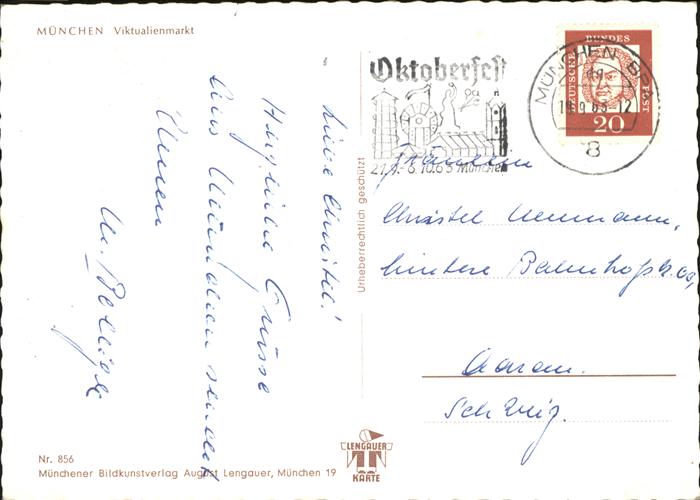 MÜNCHEN Viktualienmarkt
Liebe Christel!
Herzliche Grüsse
aus München sendet
Ihnen
Urheberrechtlich geschützt
Oktoberfest
21.9.-6.10.63 München
MÜNCHEN BP
19.9.63-12
8
DEUTSCHE BUNDESPOST
20
Fräulein
Christel Neumann,
hintere Bahnhofstr.
Aarau.
Schweiz.
Nr. 856
Münchener Bildkunstverlag August Lengauer, München 19
LENGAUER
KARTE